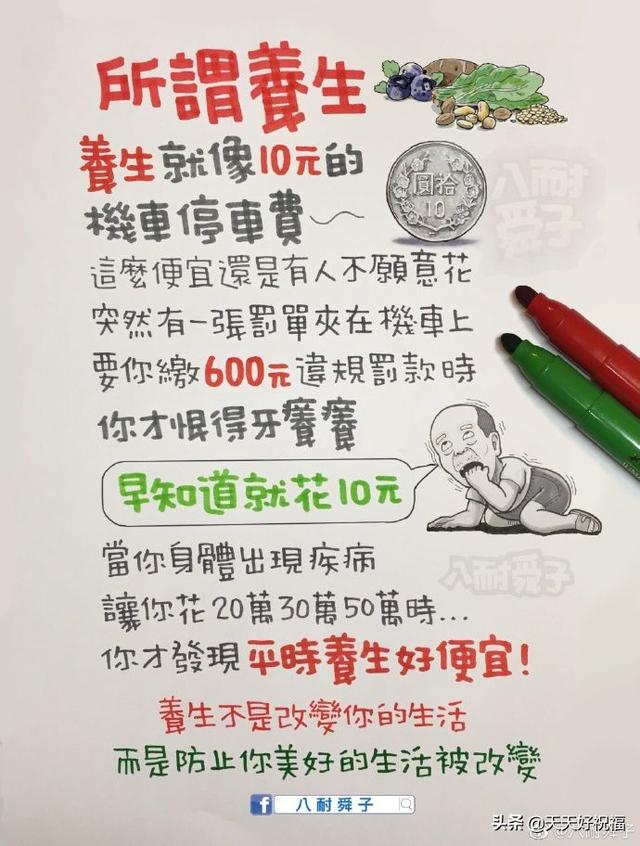 所謂養生
養生就像10元的
機車停車費～
拾圓
10
八耐
舜子
這麼便宜還是有人不願意花
突然有一張罰單夾在機車上
要你繳600元違規罰款時
你才恨得牙癢癢
早知道就花10元
當你身體出現疾病
八耐舜子
讓你花20萬30萬50萬時...
你才發現平時養生好便宜!
養生不是改變你的生活
而是防止你美好的生活被改變
f 八耐舜子
头条 @天天好祝福
@八耐舜子